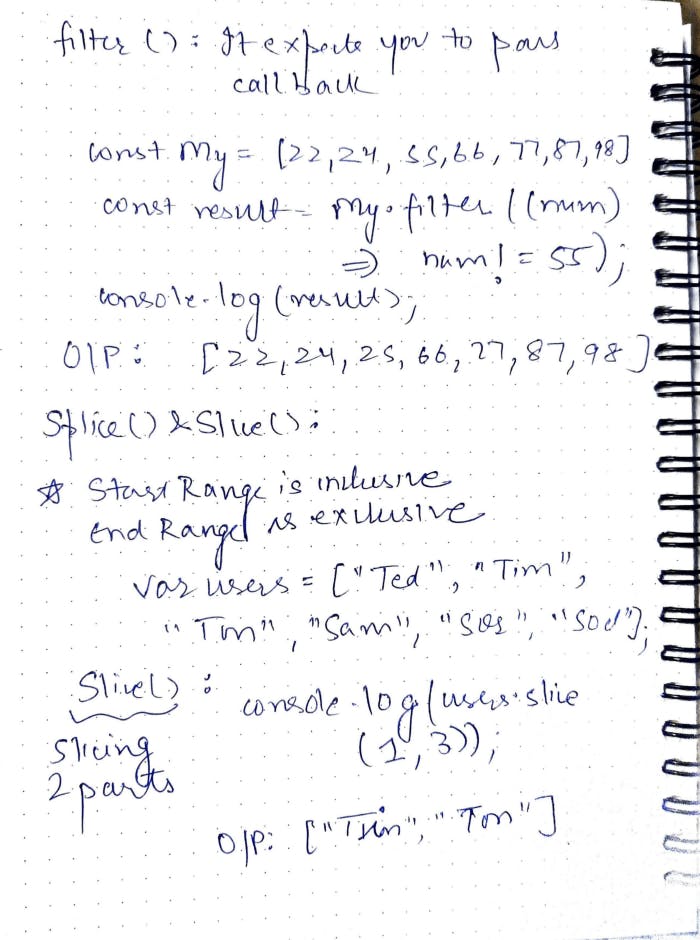 filter () : It expects you to pass
callback
const my = [22,24, 55,66, 77,87,98]
const result = my.filter ((num)
=> num! = 55);
console.log (result);
O/P : [22,24, 25, 66, 27, 87, 98]
Splice() & Slice() :
☆ Start Range is inclusive
End Range is exclusive
var users = ["Ted", "Tim",
"Tm", "Sam", "Sos", "Sod"];
Slice() : console.log (users.slice
slicing (1, 3));
2 parts
O/P: ["Tim", "Tom"]